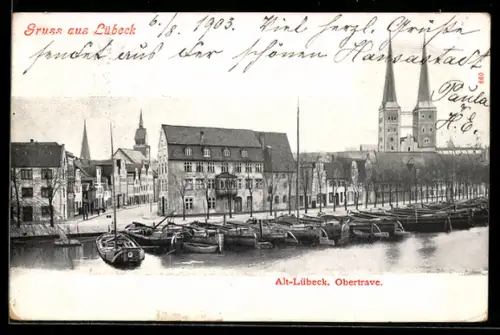 Gruss aus Lübeck
6./8. 1903. Viel herzl. Grüße
sendet aus der schönen Hansastadt
Paula
H. E.
660
Alt-Lübeck. Obertrave.